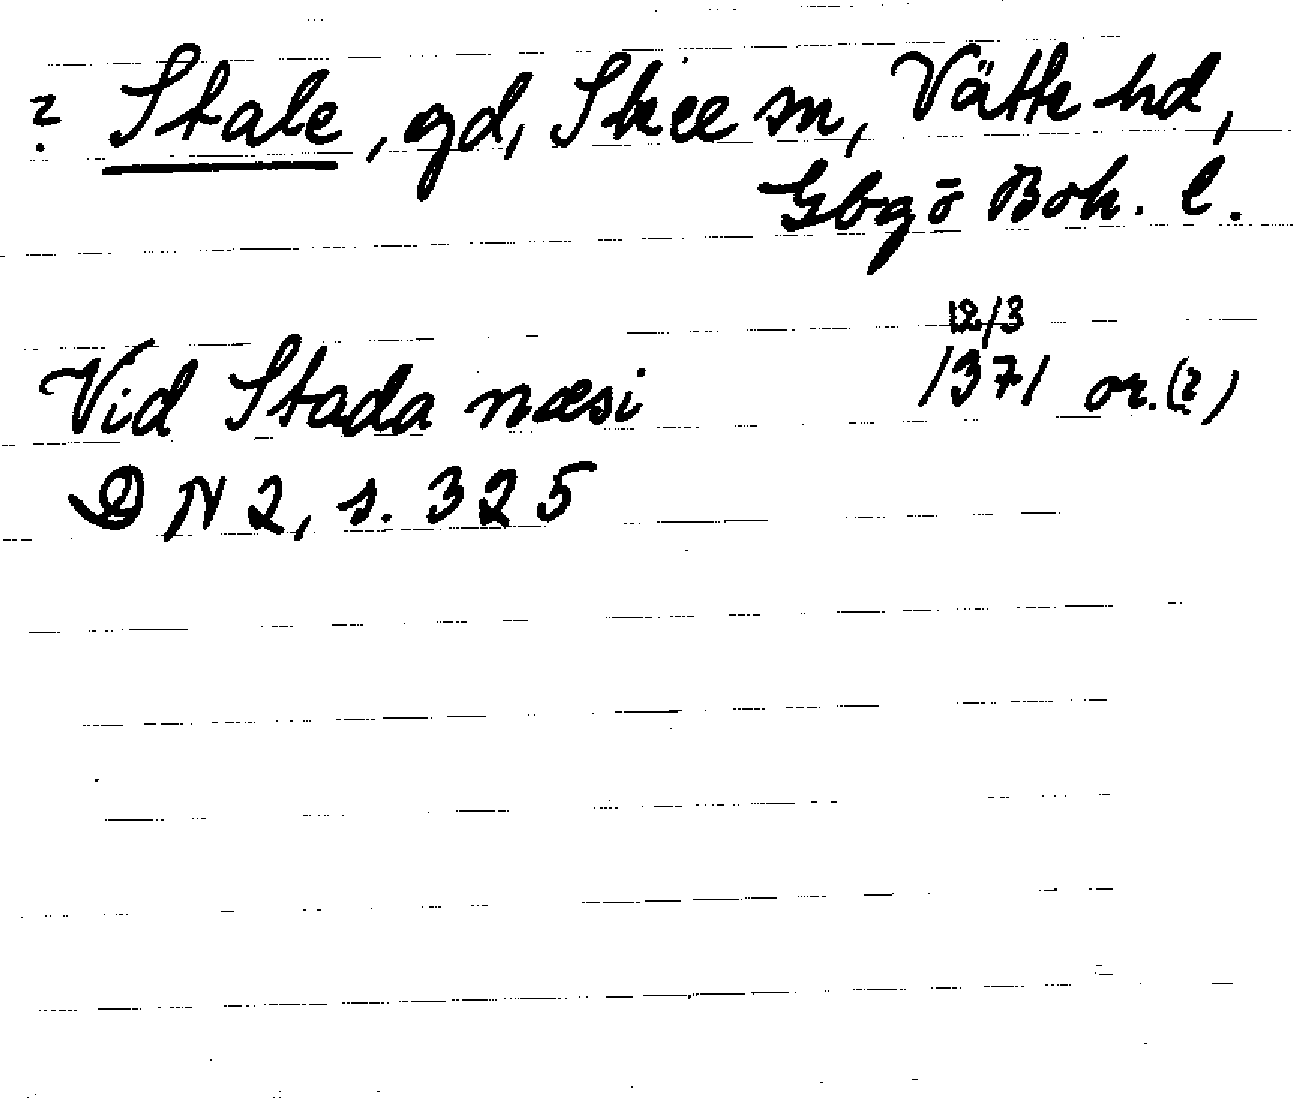 ? Stale, gd, Skee sn, Vätte hd,
Gbg o Boh. l.
12/3
Vid Stada næsi 1371 or. (?)
DN 2, s. 325